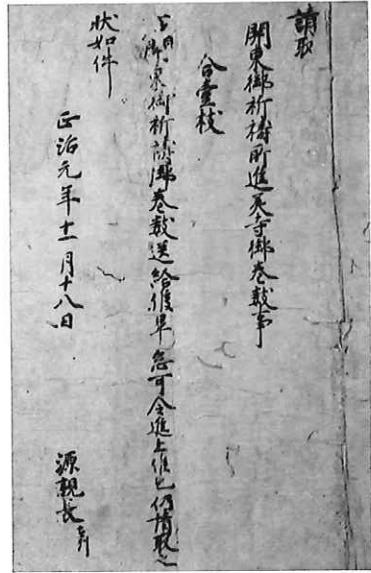 請取
關東御祈祷所進美寺御巻数事
合壹枝
右關東御祈祷御巻数送給候畢忩可令進上候也仍請取之
状如件
正治元年十一月十八日
源親長在判